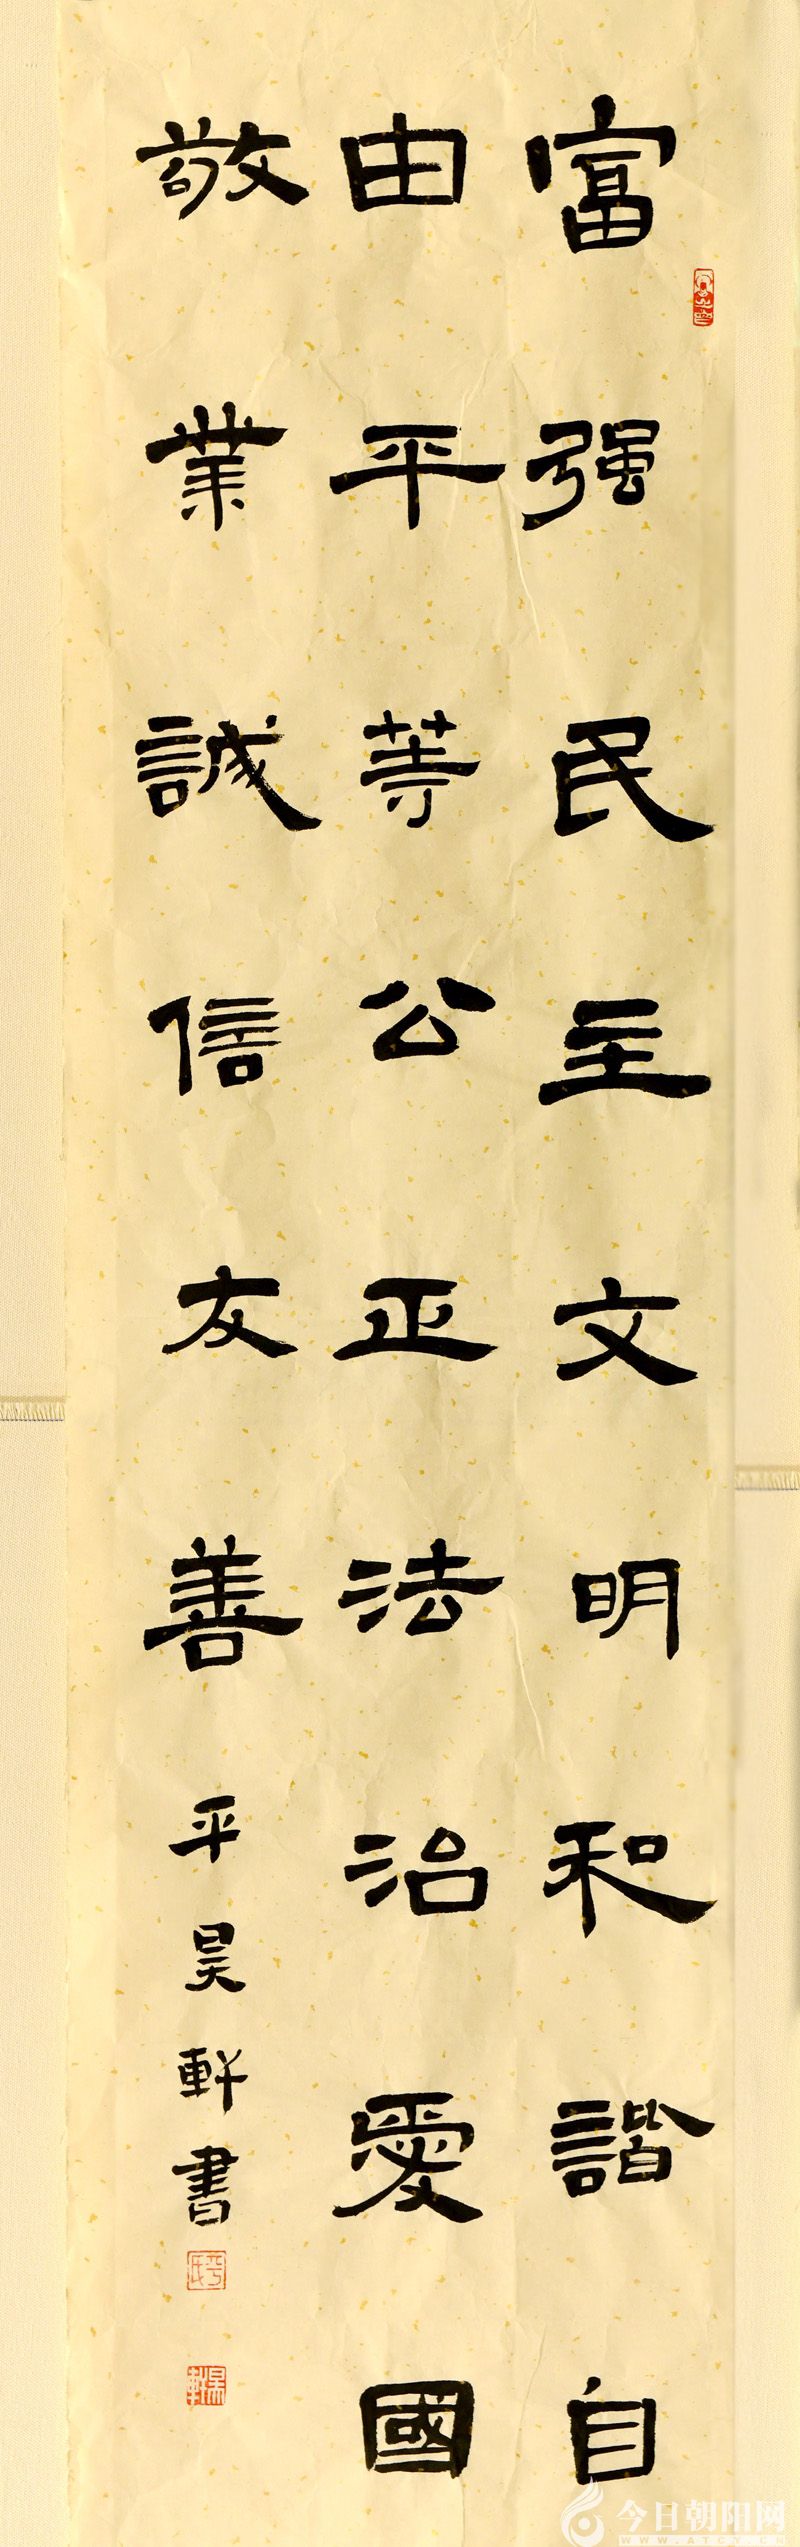 富强民主文明和諧自
由平等公正法治愛國
敬業誠信友善
平昊軒書
平氏
昊軒
今日朝阳网
WWW.ATCY.CN